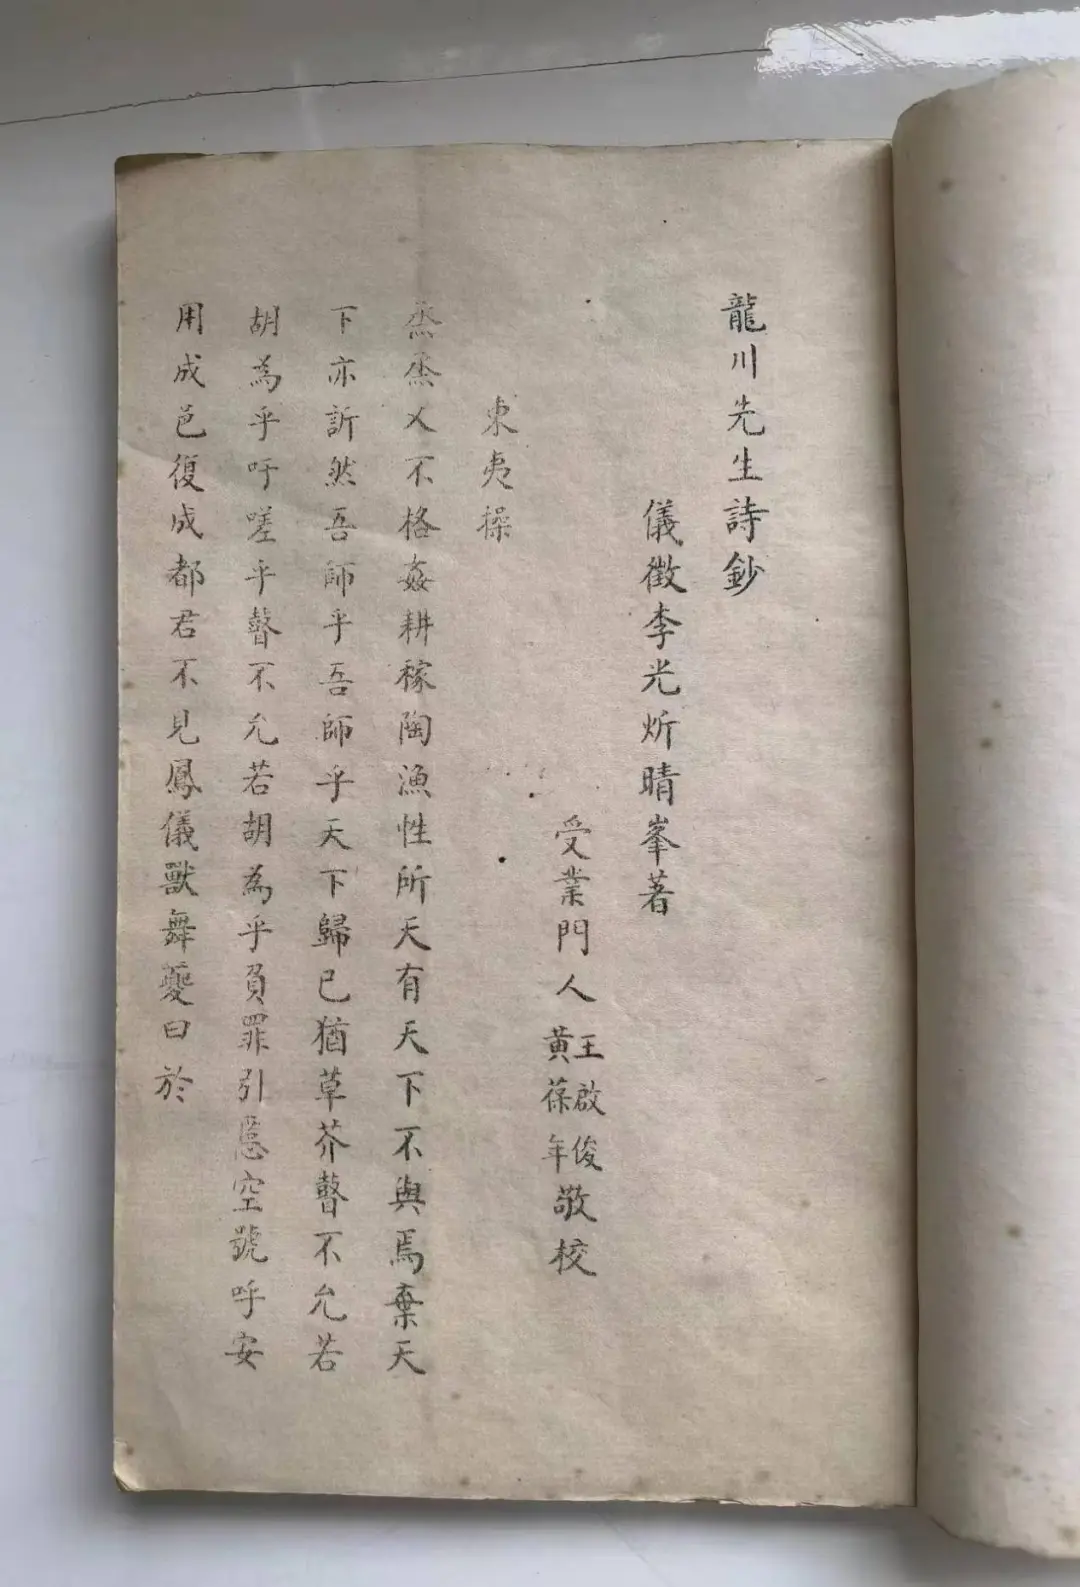 龍川先生詩鈔
儀徵李光炘晴峯著
受業門人王啟俊黃葆年敬校
東夷操
烝烝乂不格姦耕稼陶漁性所天有天下不與焉棄天
下亦訢然吾師乎吾師乎天下歸已猶草芥瞽不允若
胡為乎吁嗟乎瞽不允若胡為乎負罪引慝空號呼安
用成邑復成都君不見鳳儀獸舞夔曰於